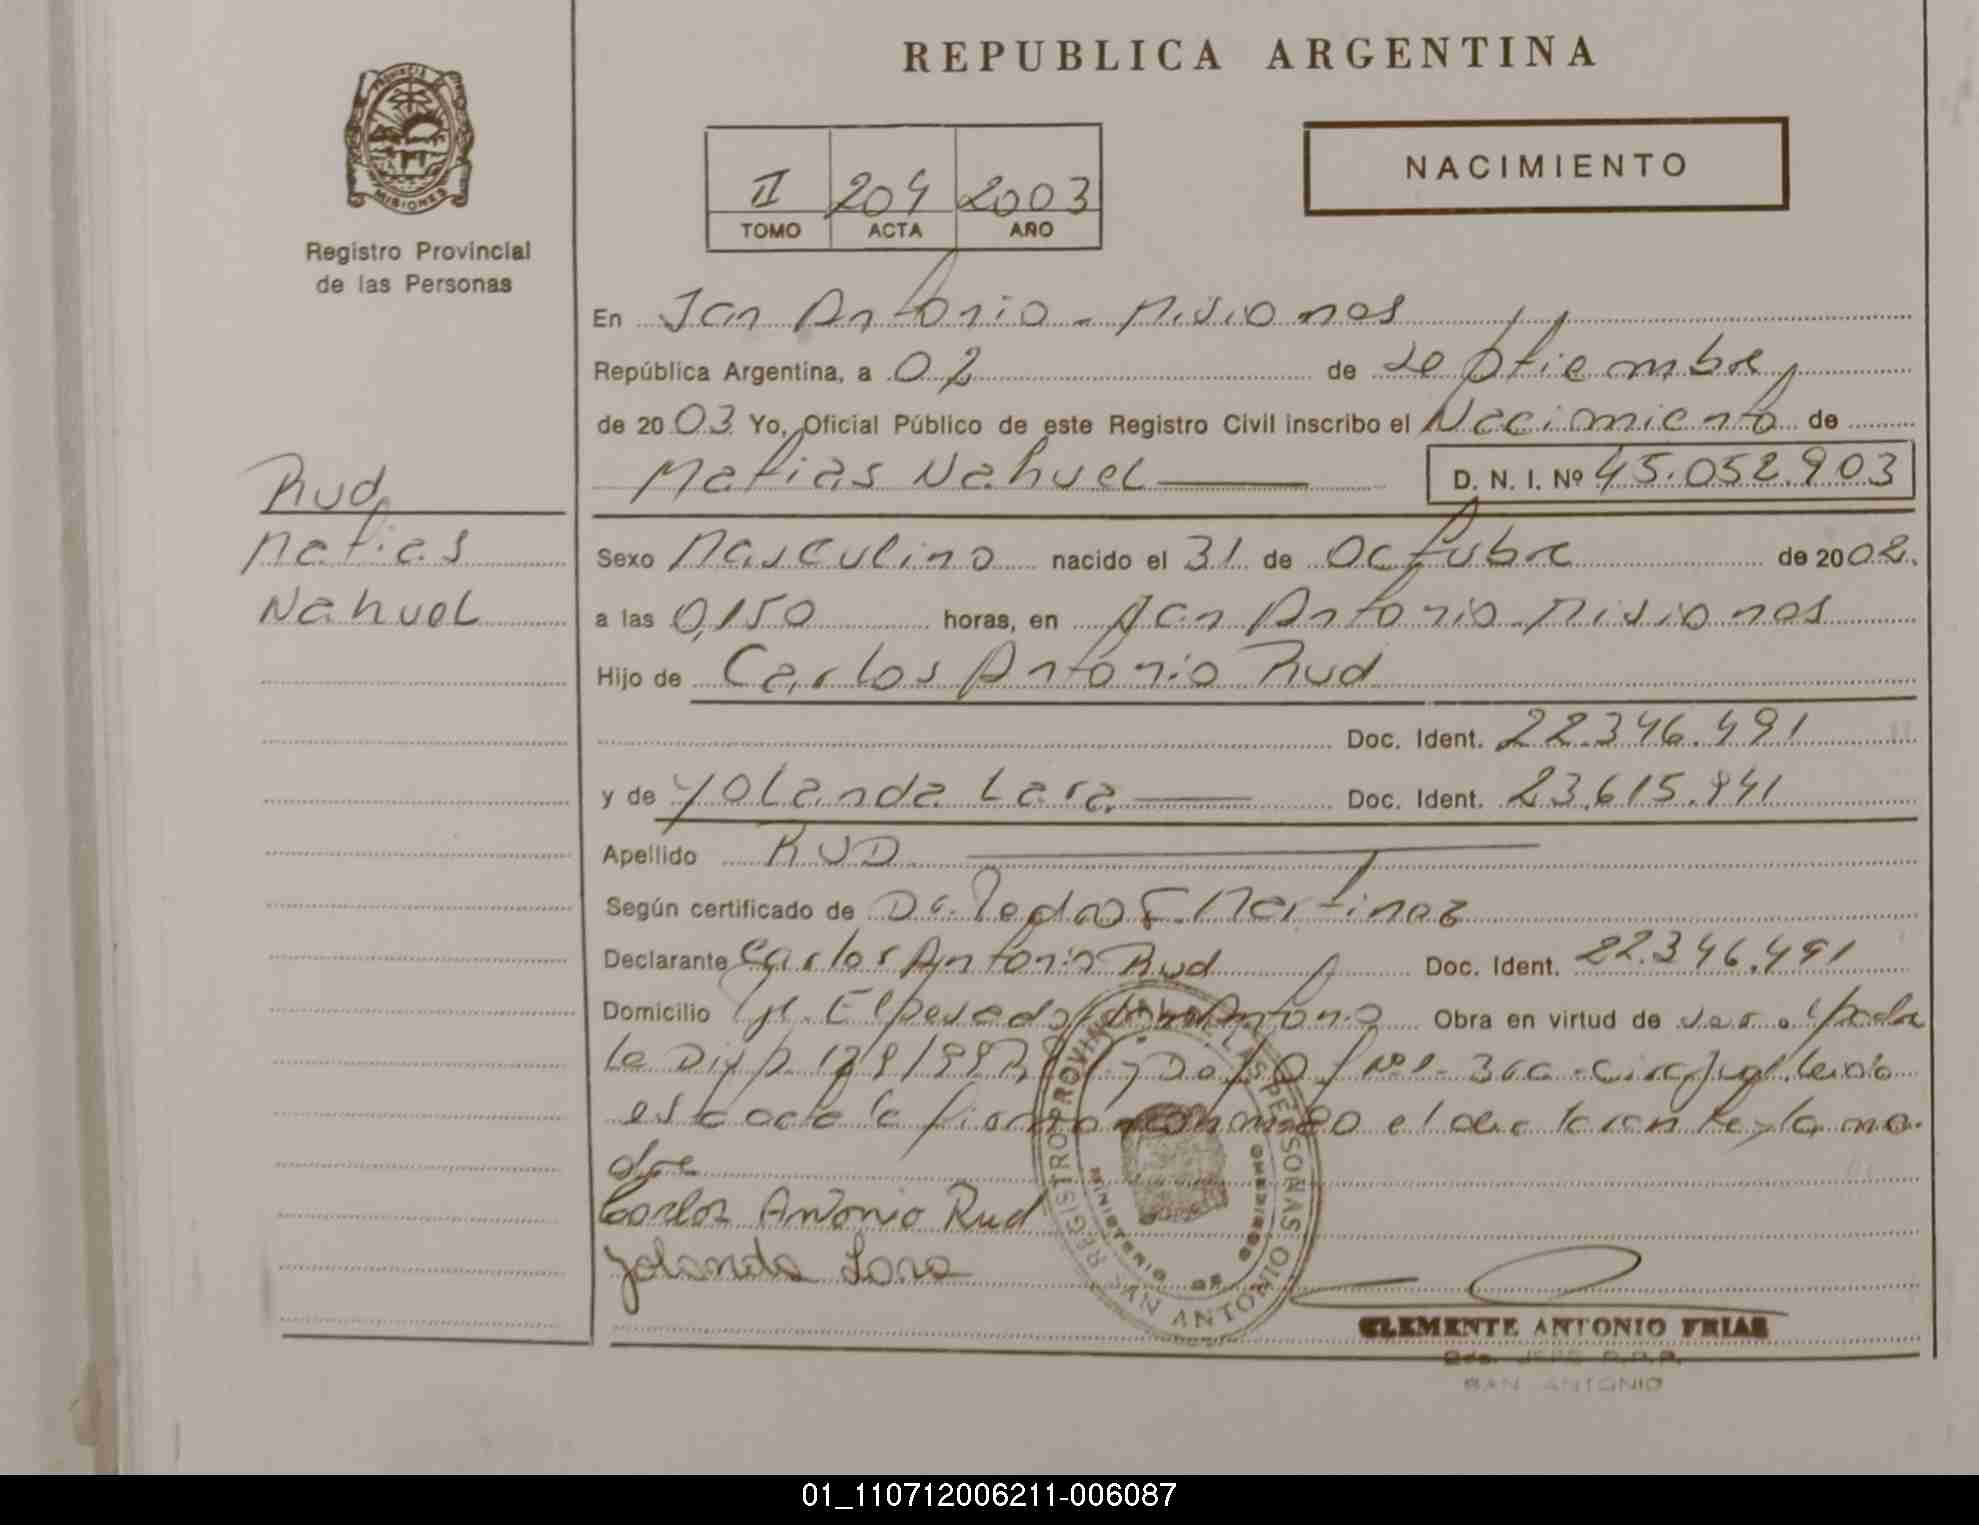 REPUBLICA ARGENTINA
PROVINCIA MISIONES
Registro Provincial
de las Personas
NACIMIENTO
II 204 2003
TOMO ACTA AÑO
En San Antonio - Misiones
República Argentina, a 02 de septiembre,
de 2003 Yo, Oficial Público de este Registro Civil inscribo el Nacimiento de
Matias Nahuel D. N. I. Nº 45.052.903
Rud
Matias
Nahuel
Sexo Masculino nacido el 31 de Octubre de 2002.
a las 0,150 horas, en San Antonio - Misiones
Hijo de Carlos Antonio Rud
Doc. Ident. 22.346.491
y de Yolanda Lara Doc. Ident. 23.615.941
Apellido RUD
Según certificado de Dr. Pedro E. Martinez
Declarante Carlos Antonio Rud Doc. Ident. 22.346.491
Domicilio San Antonio Obra en virtud de ser
la Disp. Nº 1 - 3ra - leida
esta acta la firman conmigo el declarante y la ma-
dre
Carlos Antonio Rud
Yolanda Lara
REGISTRO PROVINCIAL DE LAS PERSONAS
MINISTERIO DE GOBIERNO
SAN ANTONIO
CLEMENTE ANTONIO FRIAS
JEFE R.P.P.
SAN ANTONIO
01_110712006211-006087